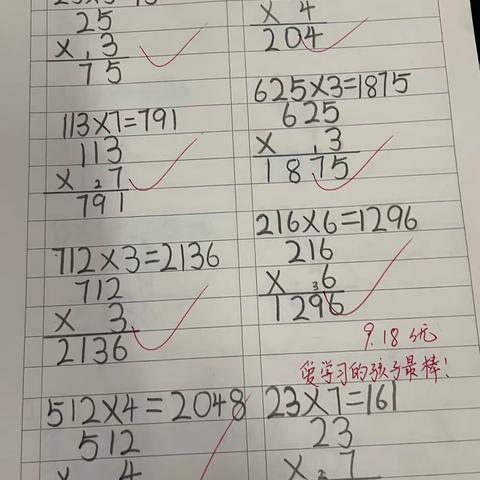 25
× 3
75
113×7=791
113
× 2 7
791
712×3=2136
712
× 3
2136
512×4=2048
512
× 4
× 4
204
625×3=1875
625
× 1 3
1875
216×6=1296
216
× 3 6
1296
9.18
爱学习的孩子最棒!
23×7=161
23
× 2 7